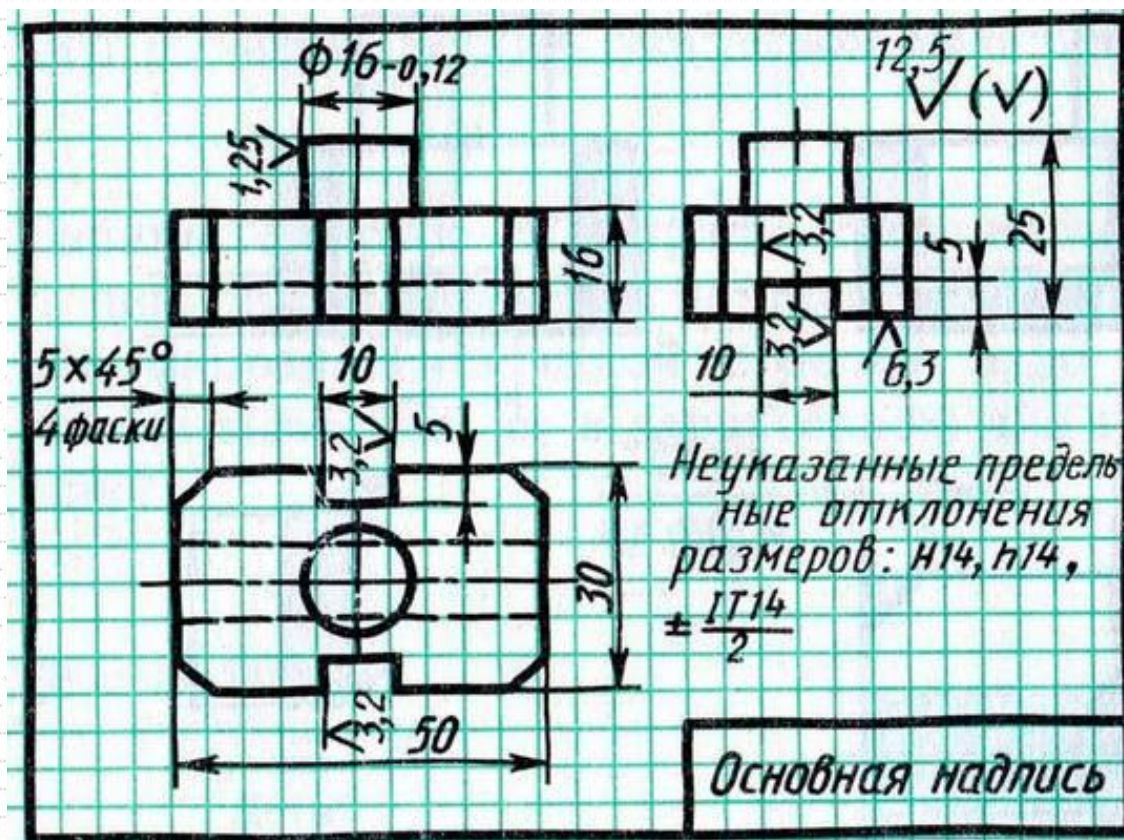 ϕ16-0,12
12,5 √ (√)
1,25
16
3,2
5
25
5×45°
4 фаски
10
3,2
5
10
3,2
6,3
30
Неуказанные предель
ные отклонения
размеров: H14, h14,
± IT14
2
3,2
50
Основная надпись